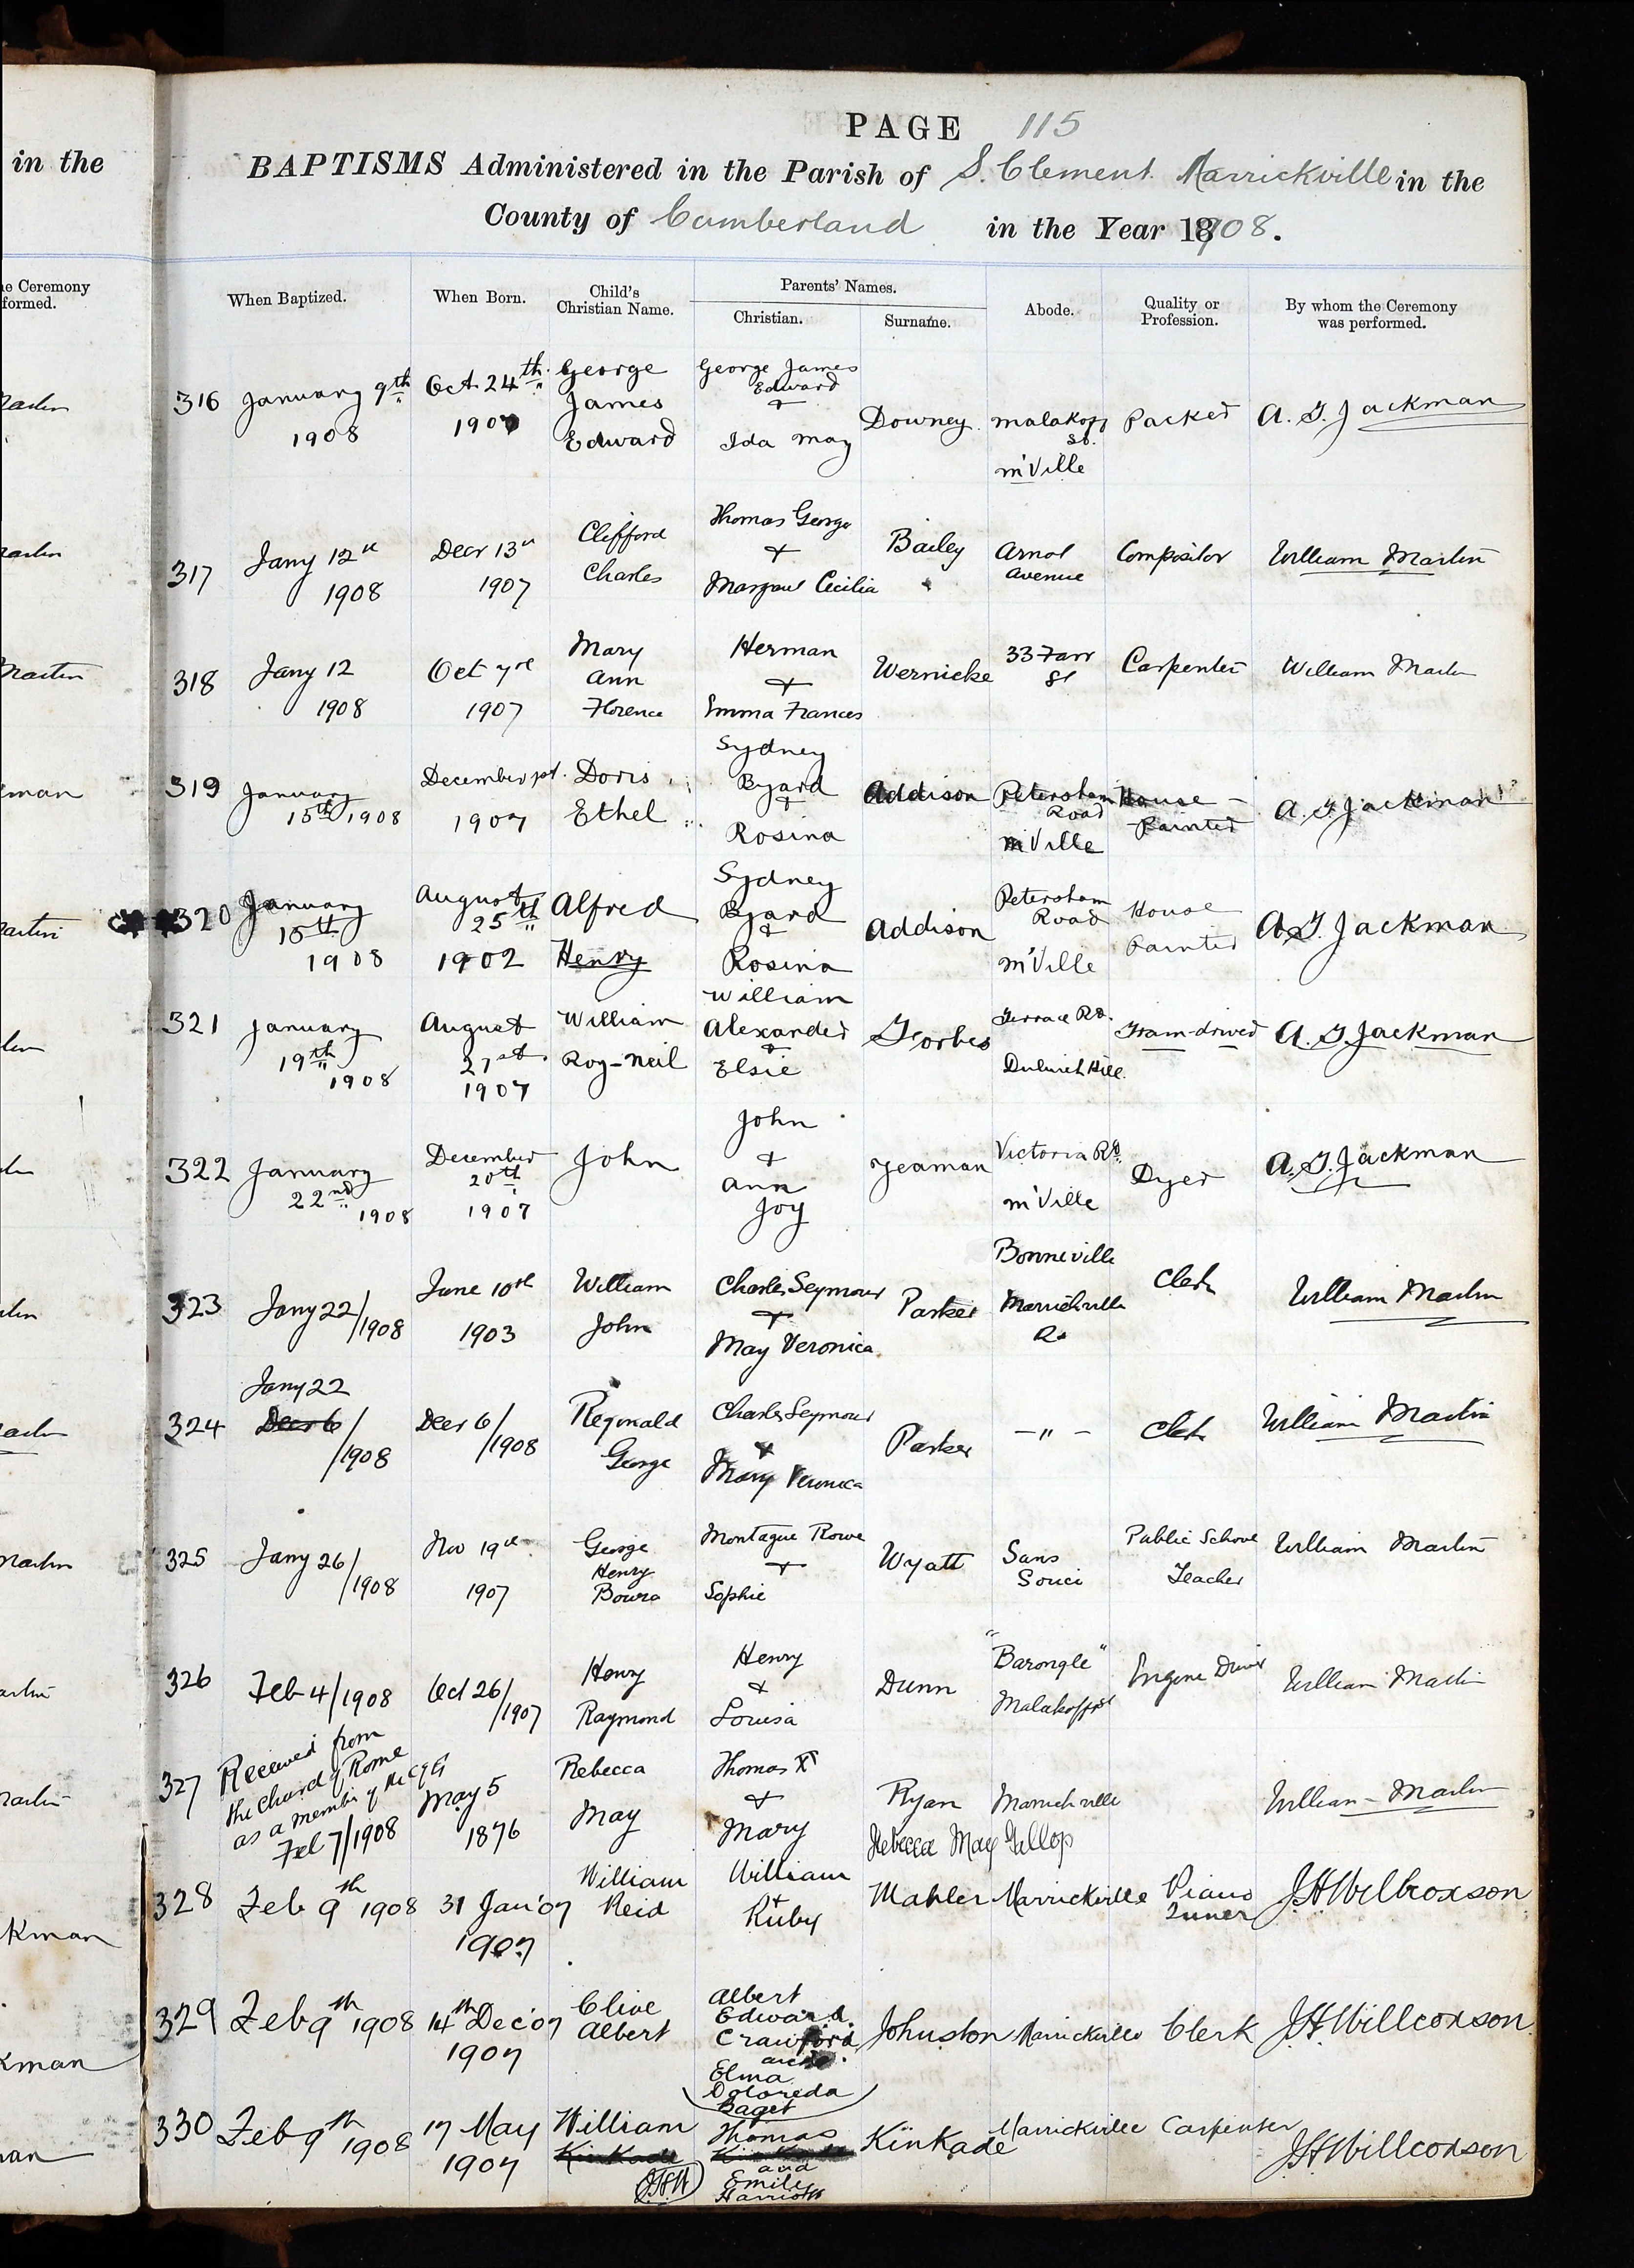 in the
PAGE 115
BAPTISMS Administered in the Parish of S. Clement Marrickville in the
County of Cumberland in the Year 1908.
e Ceremony
formed.
When Baptized.
When Born.
Child's
Christian Name.
Parents' Names.
Christian.
Surname.
Abode.
Quality or
Profession.
By whom the Ceremony
was performed.
316
January 9th
1908
Oct 24th
1907
George
James
Edward
George James
Edward
+
Ida May
Downey
Malakoff
St.
M'Ville
Packer
A. G. Jackman
317
Jany 12th
1908
Decr 13th
1907
Clifford
Charles
Thomas George
+
Cecilia
Bailey
Avenue
Compositor
William Martin
318
Jany 12
1908
Oct
1907
Mary
Ann
Florence
Herman
+
Emma Frances
Wernicke
33 Farr
St
Carpenter
William Martin
319
January
15th 1908
December 1st.
1907
Doris
Ethel
Sydney
Byard
+
Rosina
Addison
Petersham
Road
M'Ville
House -
Painter
A. G. Jackman
320
January
15th
1908
August
25th
1902
Alfred
Henry
Sydney
Byard
+
Rosina
Addison
Petersham
Road
M'Ville
House
Painter
A. G. Jackman
321
January
19th
1908
August
27st
1907
William
Roy-Neil
William
Alexander
+
Elsie
Forbes
Terrace Rd.
Dulwich Hill.
Tram-driver
A. G. Jackman
322
January
22nd
1908
December
20th
1907
John
John
+
Ann
Joy
Yeaman
Victoria Rd.
M'Ville
Dyer
A. G. Jackman
323
Jany 22/
1908
June 10th
1903
William
John
Charles Seymour
+
May Veronica
Parker
Bonneville
Marrickville
Rd
Clerk
William Martin
324
Jany 22
Decr 6/
1908
Decr 6/
1908
Reginald
George
Charles Seymour
+
Mary Veronica
Parker
- " -
Clerk
William Martin
325
Jany 26/
1908
Nov 19th
1907
George
Henry
Bowra
Montague Rowe
+
Sophie
Wyatt
Sans
Souci
Public School
Teacher
William Martin
326
Feb 4/1908
Oct 26/
1907
Henry
Raymond
Henry
+
Louisa
Dunn
"Barongle"
Malakoff St
Engine Driver
William Martin
327
Received from
the Church of Rome
as a member of the C of E
Feb 7/1908
May 5
1876
Rebecca
May
Thomas
+
Mary
Ryan
Rebecca May Gallop
Marrickville
William Martin
328
Feb 9th 1908
31 Jan '07
1907
William
Reid
William
+
Ruby
Mahler
Marrickville
Piano
Tuner
J H Willcoxson
329
Feb 9th 1908
14th Dec '07
1907
Clive
Albert
Albert
Edward
Crawford
and
Elma
Doloreda
Baget
Johnston
Marrickville
Clerk
J H Willcoxson
330
Feb 9th 1908
17 May
1907
William
KinKade
JHW
Thomas
and
Emile
Harriott
KinKade
Marrickville
Carpenter
J H Willcoxson